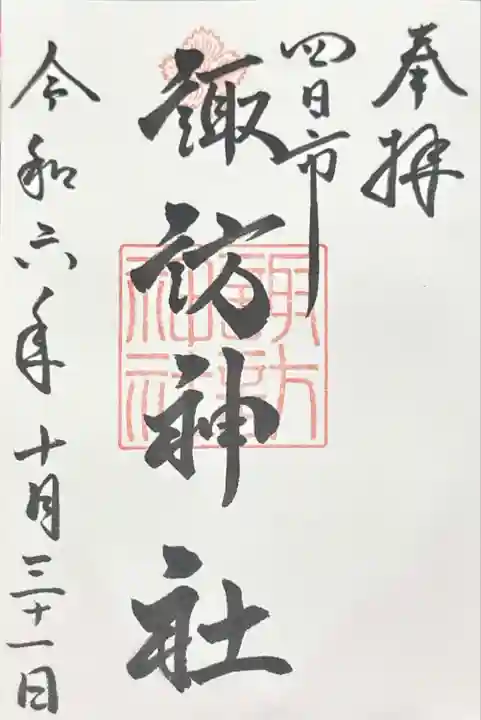 奉拝
四日市
諏訪神社
諏訪神社
令和六年十月三十一日